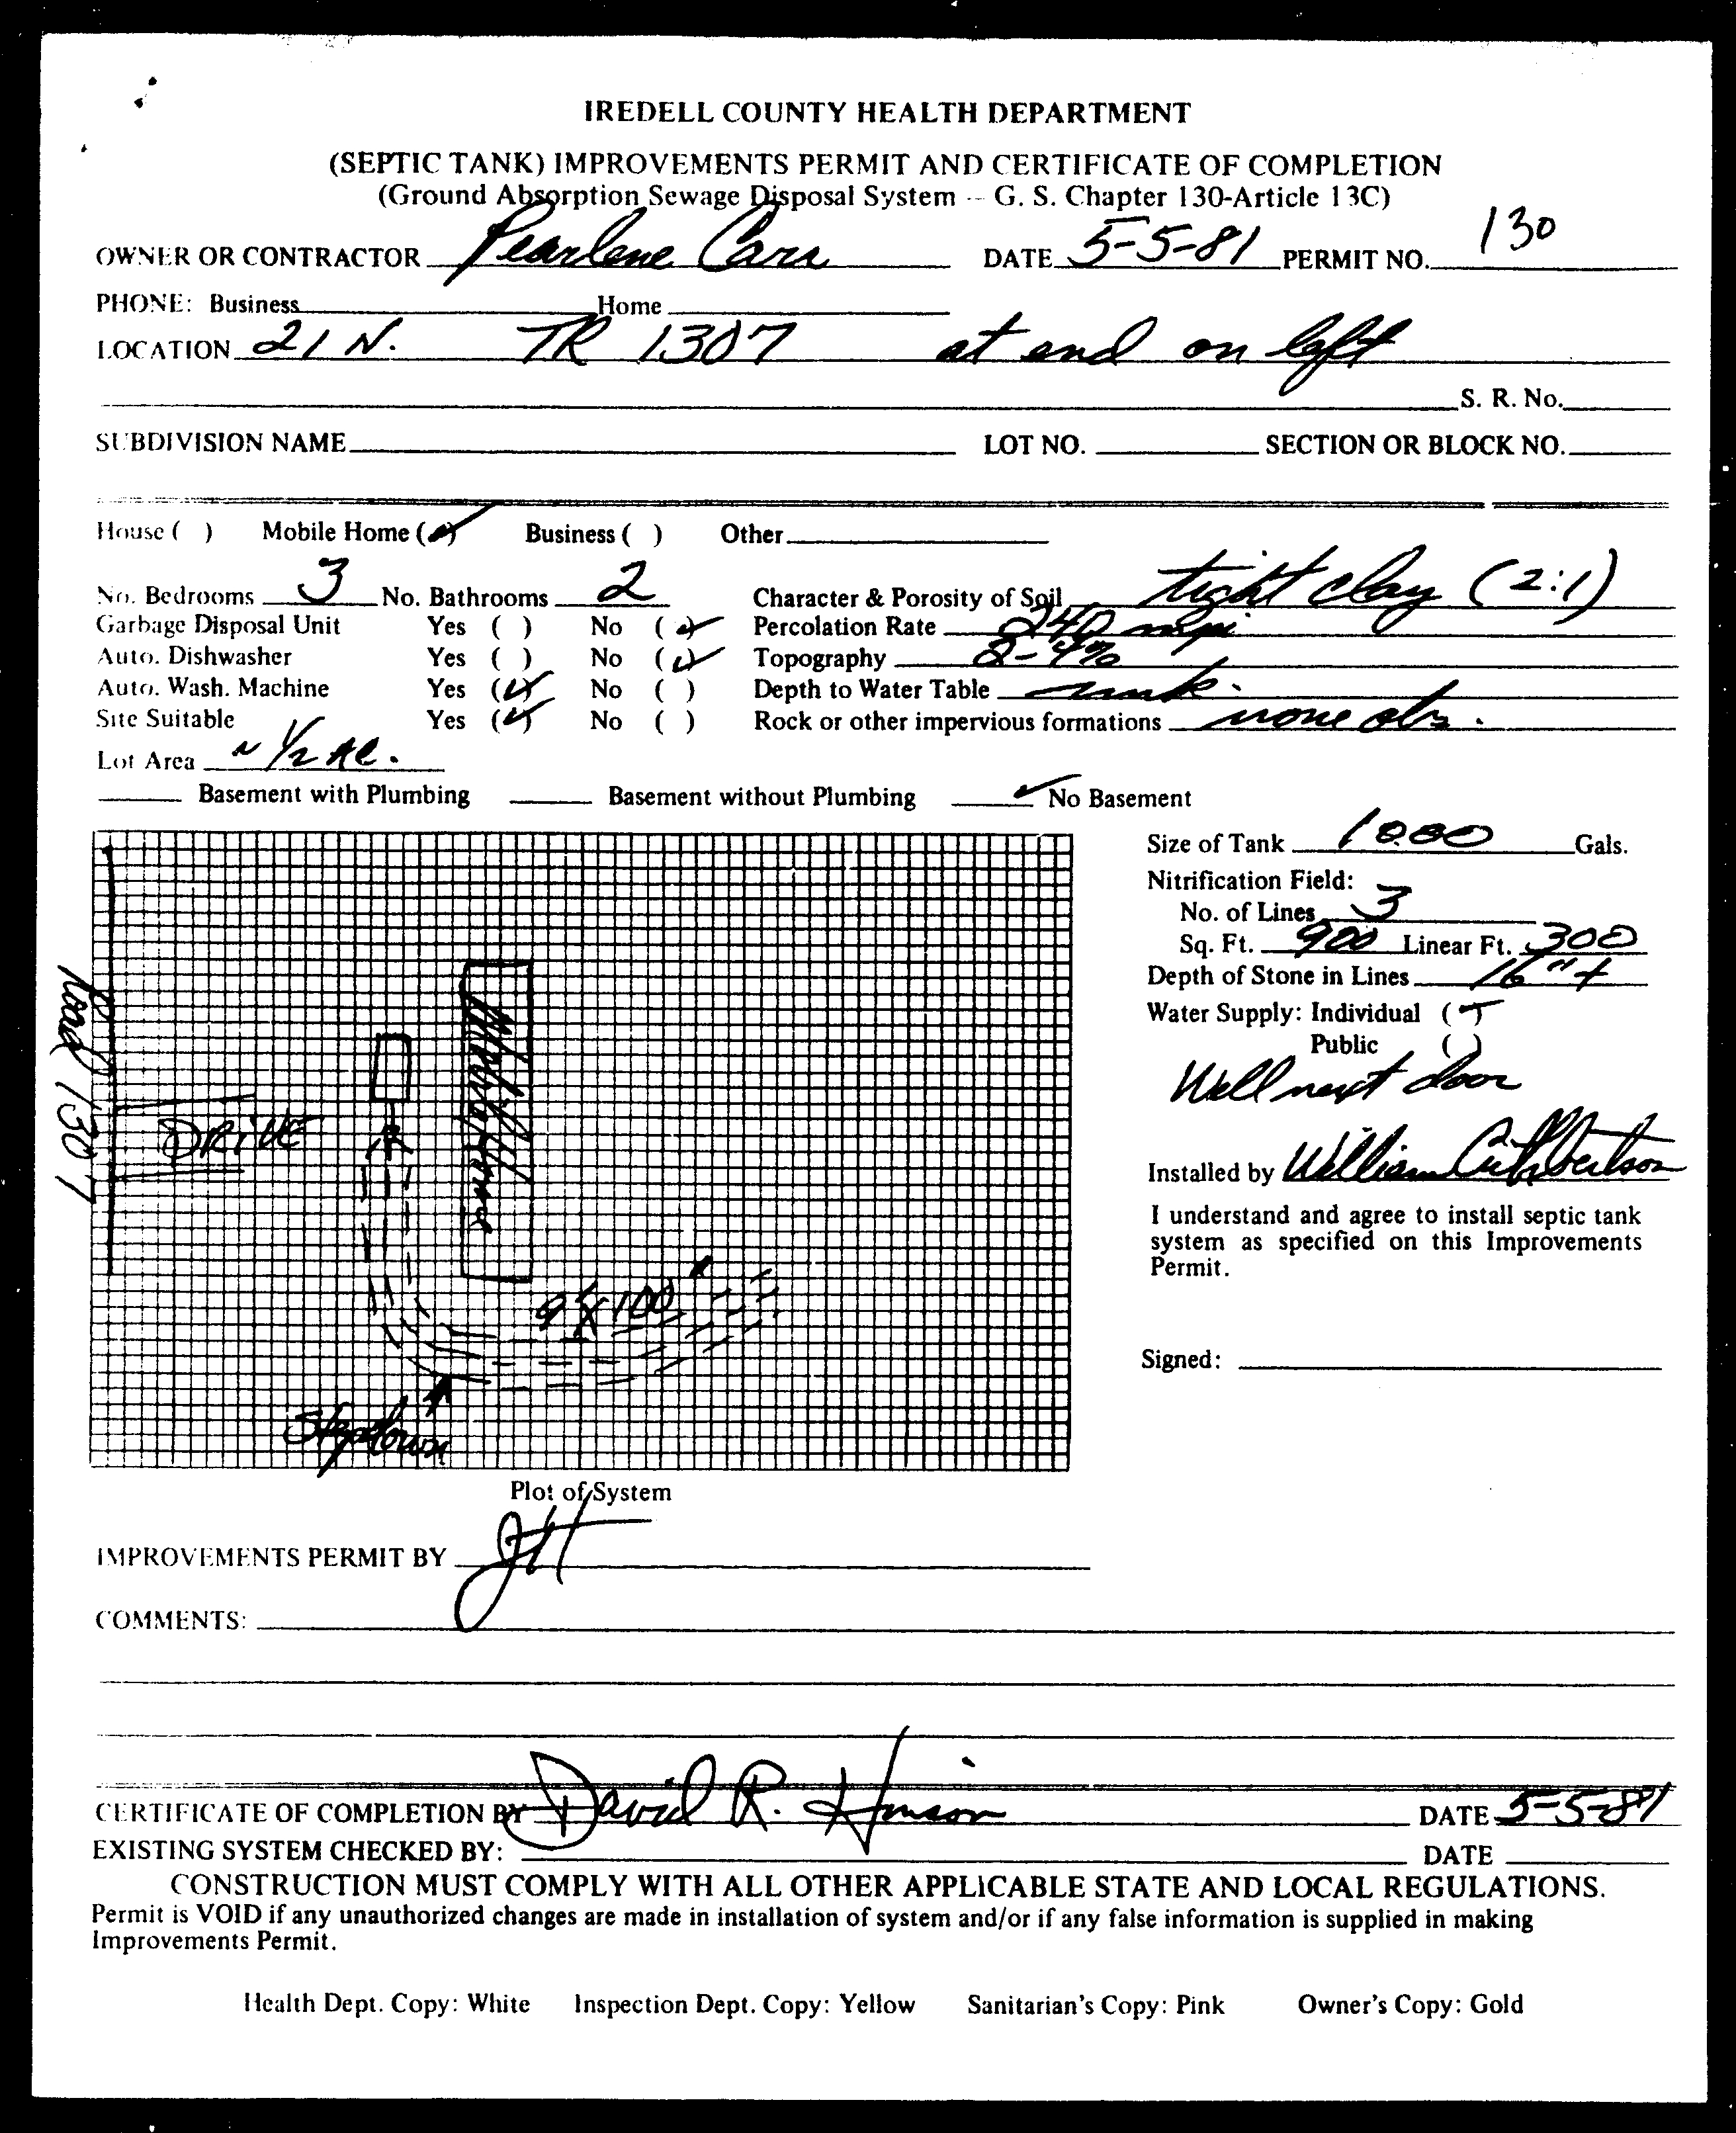 IREDELL COUNTY HEALTH DEPARTMENT
(SEPTIC TANK) IMPROVEMENTS PERMIT AND CERTIFICATE OF COMPLETION
(Ground Absorption Sewage Disposal System -- G. S. Chapter 130-Article 13C)
OWNER OR CONTRACTOR Pearlene Carr DATE 5-5-81 PERMIT NO. 130
PHONE: Business Home
LOCATION 21 N. TR 1307 at end on left
S. R. No.
SUBDIVISION NAME LOT NO. SECTION OR BLOCK NO.
House ( ) Mobile Home (✓) Business ( ) Other
No. Bedrooms 3 No. Bathrooms 2 Character & Porosity of Soil tight clay (2:1)
Garbage Disposal Unit Yes ( ) No (✓) Percolation Rate 240 mpi
Auto. Dishwasher Yes ( ) No (✓) Topography 2-4%
Auto. Wash. Machine Yes (✓) No ( ) Depth to Water Table unk.
Site Suitable Yes (✓) No ( ) Rock or other impervious formations none obs.
Lot Area ~ 1/2 AC.
Basement with Plumbing Basement without Plumbing ✓ No Basement
Size of Tank 1000 Gals.
Nitrification Field:
No. of Lines 3
Sq. Ft. 900 Linear Ft. 300
Depth of Stone in Lines 16"+
Water Supply: Individual (✓)
Public ( )
Well next door
Installed by William Cuthbertson
I understand and agree to install septic tank
system as specified on this Improvements
Permit.
Signed:
Road 1307
DRIVE
Mobile Home
9' X 100'
Stepdown
Plot of System
IMPROVEMENTS PERMIT BY JH
COMMENTS:
CERTIFICATE OF COMPLETION BY David R. Hinson DATE 5-5-81
EXISTING SYSTEM CHECKED BY: DATE
CONSTRUCTION MUST COMPLY WITH ALL OTHER APPLICABLE STATE AND LOCAL REGULATIONS.
Permit is VOID if any unauthorized changes are made in installation of system and/or if any false information is supplied in making
Improvements Permit.
Health Dept. Copy: White Inspection Dept. Copy: Yellow Sanitarian's Copy: Pink Owner's Copy: Gold